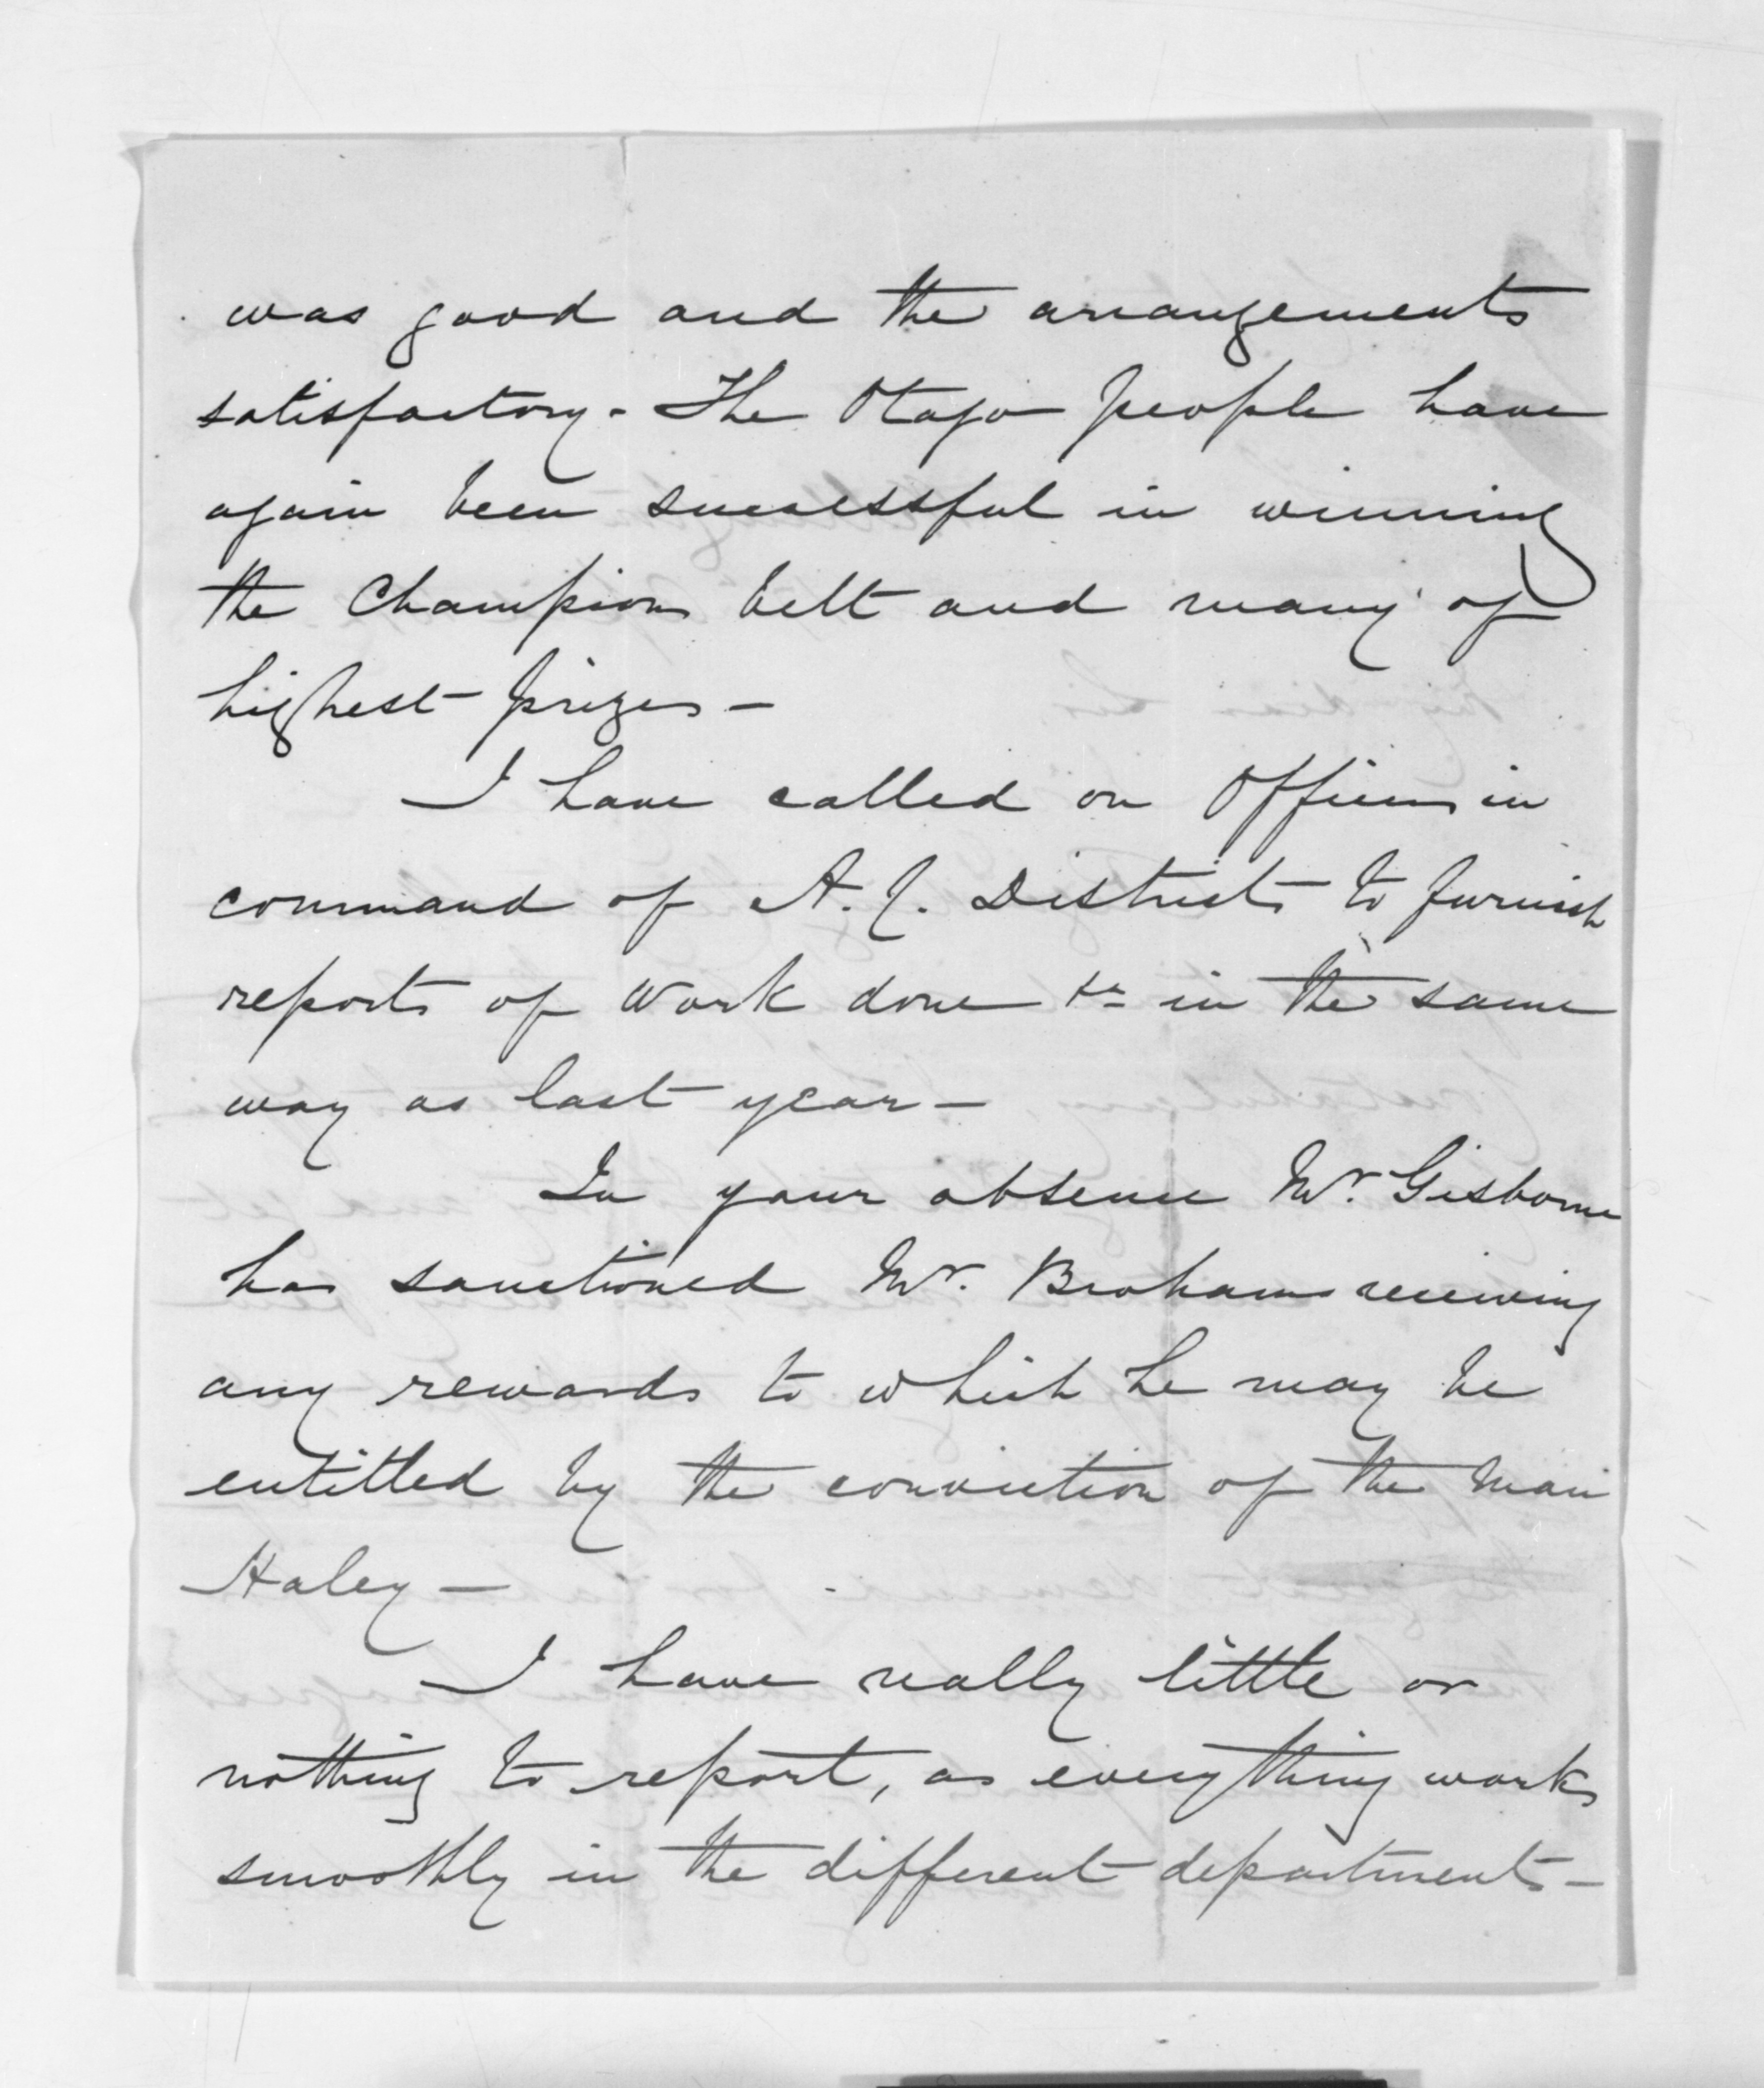 was good and the arrangements
satisfactory - The Otago people have
again been successful in winning
the Champion belt and many of
highest prizes -
I have called on Officers in
command of A.C. Districts to furnish
reports of work done &c in the same
way as last year -
In your absence Mr. Gisborne
has sanctioned Mr. Broham receiving
any rewards to which he may be
entitled by the conviction of the man
Haley -
I have really little or
nothing to report, as everything works
smoothly in the different departments -